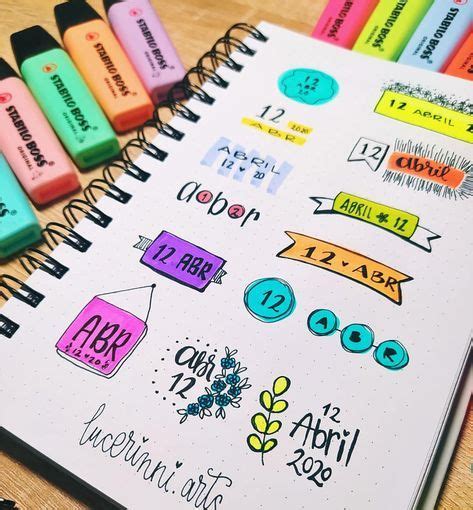 STABILO BOSS
ORIGINAL
STABILO BOSS
ORIGINAL
STABILO BOSS
ORIGINAL
STABILO BOSS
ORIGINAL
STABILO BOSS
STABILO BOSS
STABILO BOSS
STABILO BOSS
BOSS
12
ABR
20
12 ABRIL
12 2020
ABR
ABRIL
12 ♥ 20
12
abril
abor
1 2
ABRIL * 12
12 ABR
12 ♥ ABR
12
A B R
ABR
12 ♥ 20
abr
12
12
Abril
2020
lucerinni.arts